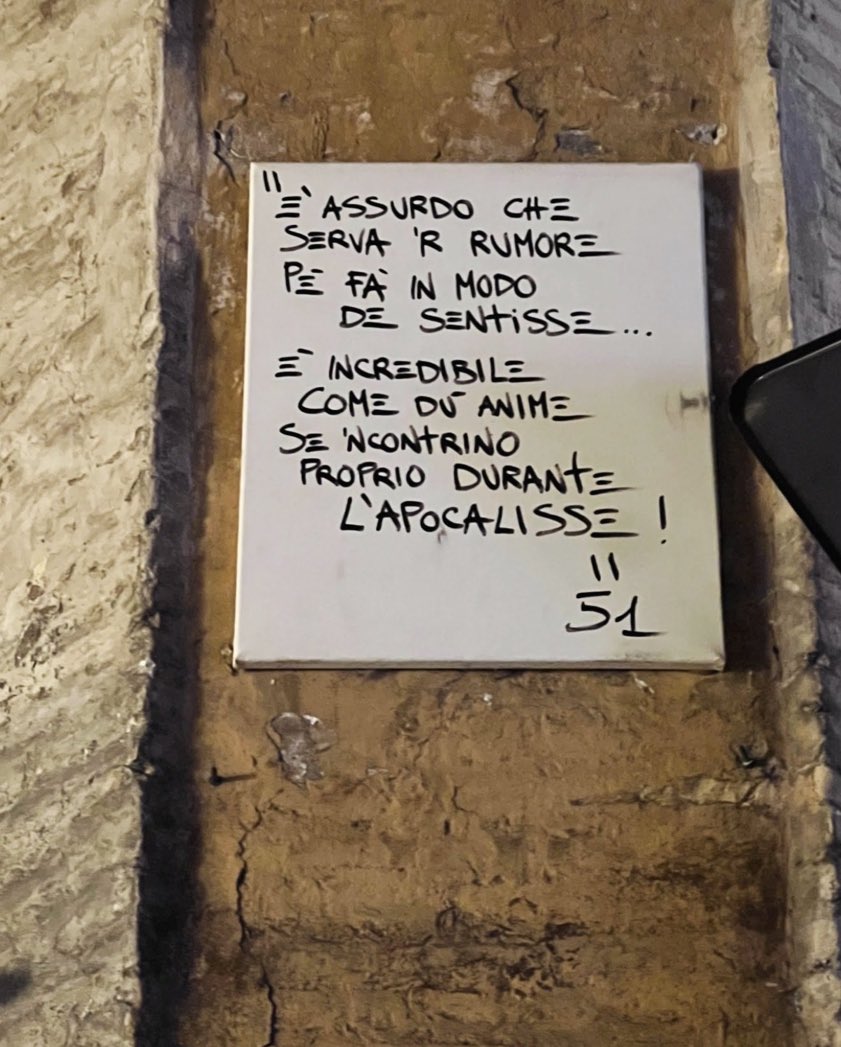 "E' ASSURDO CHE
SERVA 'R RUMORE
PE' FA' IN MODO
DE SENTISSE...
E' INCREDIBILE
COME DU' ANIME
SE 'NCONTRINO
PROPRIO DURANTE
L'APOCALISSE!
"
51